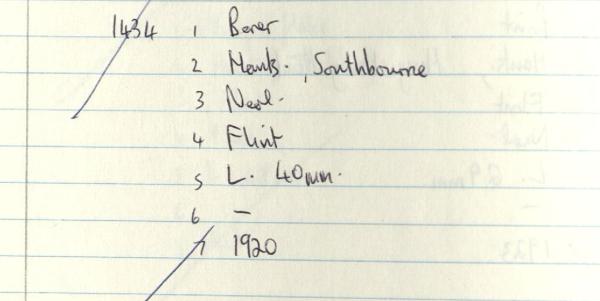 1434 1 Borer
2 Hants. , Southbourne
3 Neol.
4 Flint
5 L. 40mm.
6 –
7 1920